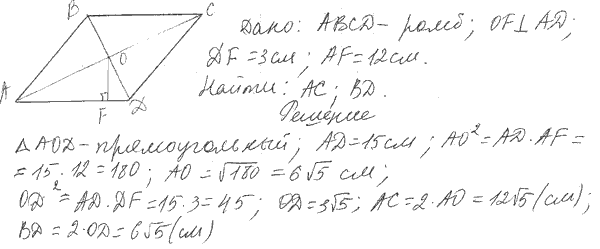 B C
Дано: ABCD – ромб; OF⊥AD;
DF = 3 см; AF = 12 см.
O
Найти: AC; BD.
A F D
Решение
△AOD – прямоугольный; AD = 15 см; AO² = AD·AF =
= 15·12 = 180; AO = √180 = 6√5 см;
OD² = AD·DF = 15·3 = 45; OD = 3√5; AC = 2·AO = 12√5 (см);
BD = 2·OD = 6√5 (см)